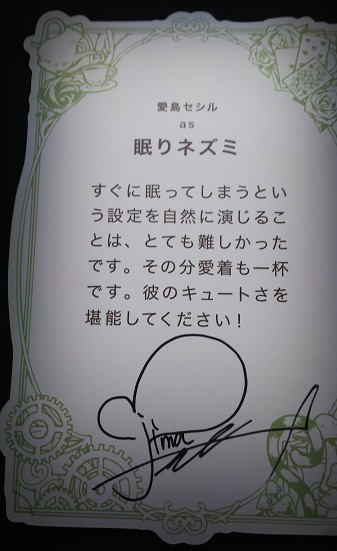 愛島セシル
as
眠りネズミ
すぐに眠ってしまうとい
う設定を自然に演じるこ
とは、とても難しかった
です。その分愛着も一杯
です。彼のキュートさを
堪能してください！